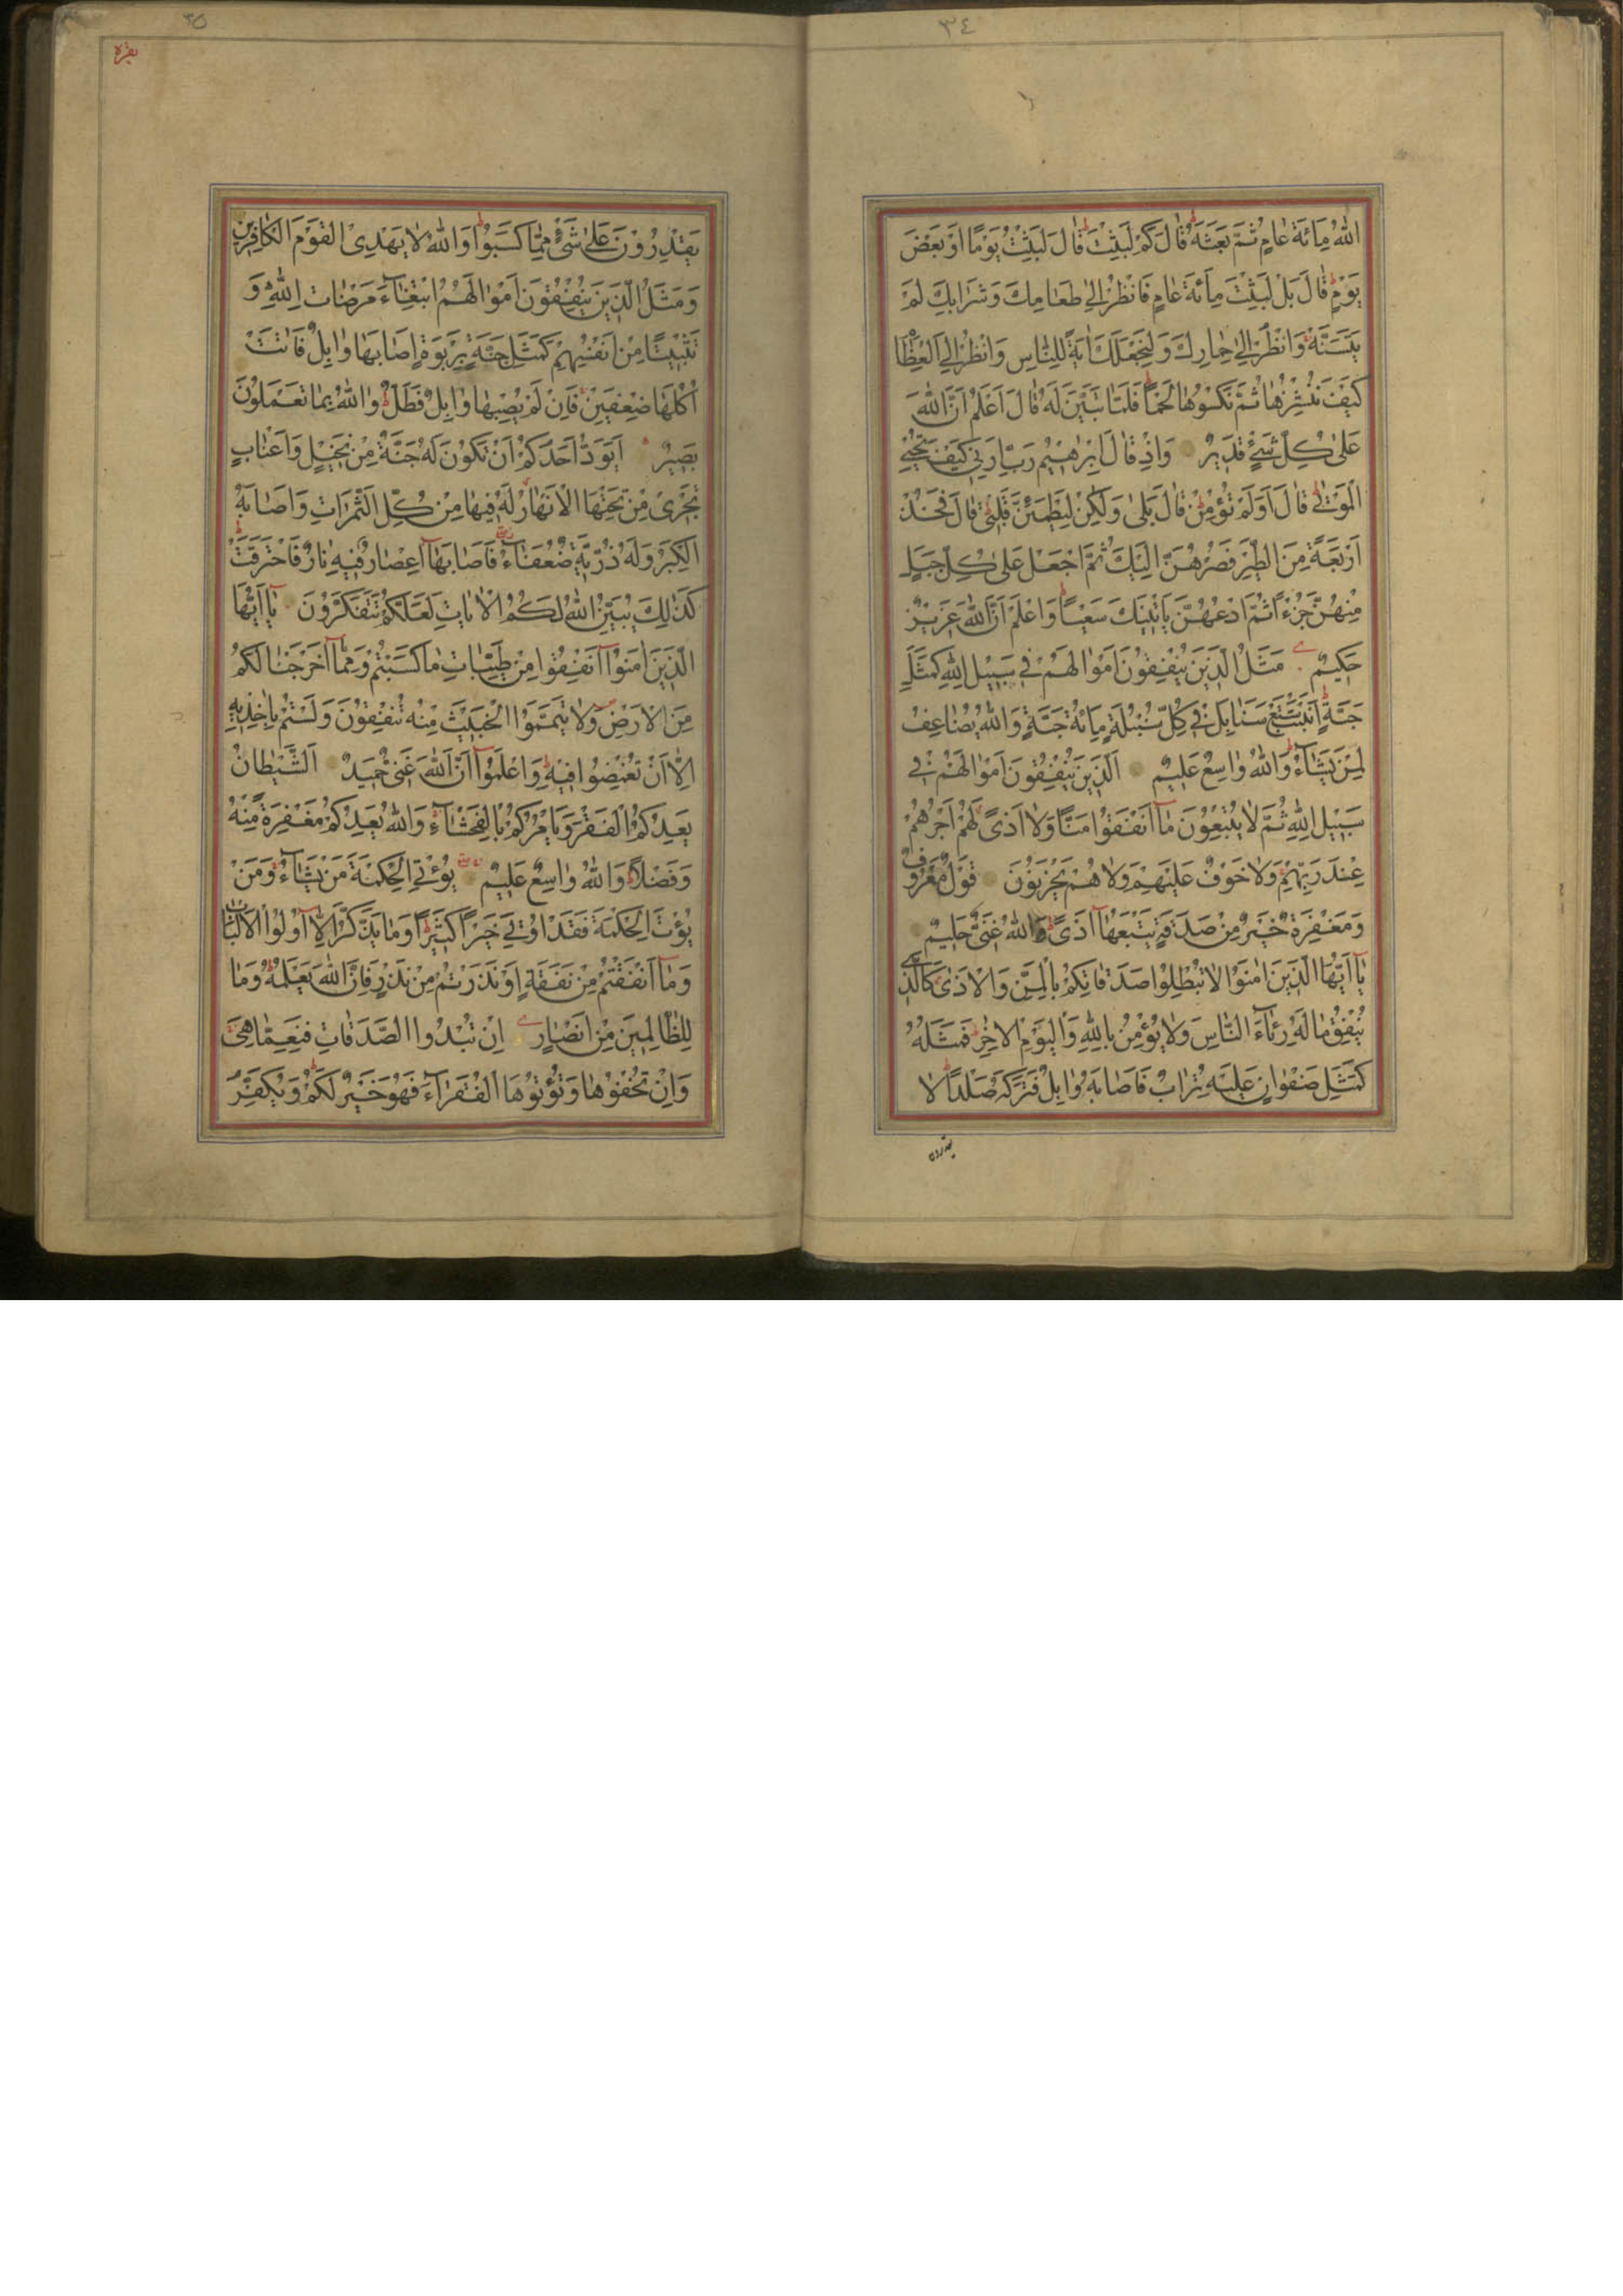 ٣٤
اللّٰهُ مِائَةَ عَامٍ ثُمَّ بَعَثَهُ قَالَ كَمْ لَبِثْتَ قَالَ لَبِثْتُ يَوْمًا اَوْ بَعْضَ
يَوْمٍ قَالَ بَلْ لَبِثْتَ مِائَةَ عَامٍ فَانْظُرْ اِلٰى طَعَامِكَ وَشَرَابِكَ لَمْ
يَتَسَنَّهْ وَانْظُرْ اِلٰى حِمَارِكَ وَلِنَجْعَلَكَ اٰيَةً لِلنَّاسِ وَانْظُرْ اِلَى الْعِظَامِ
كَيْفَ نُنْشِزُهَا ثُمَّ نَكْسُوهَا لَحْمًا فَلَمَّا تَبَيَّنَ لَهُ قَالَ اَعْلَمُ اَنَّ اللّٰهَ
عَلٰى كُلِّ شَيْءٍ قَدِيرٌ وَاِذْ قَالَ اِبْرٰهِيمُ رَبِّ اَرِنِي كَيْفَ تُحْيِي
الْمَوْتٰى قَالَ اَوَلَمْ تُؤْمِنْ قَالَ بَلٰى وَلٰكِنْ لِيَطْمَئِنَّ قَلْبِي قَالَ فَخُذْ
اَرْبَعَةً مِنَ الطَّيْرِ فَصُرْهُنَّ اِلَيْكَ ثُمَّ اجْعَلْ عَلٰى كُلِّ جَبَلٍ
مِنْهُنَّ جُزْءًا ثُمَّ ادْعُهُنَّ يَاْتِينَكَ سَعْيًا وَاعْلَمْ اَنَّ اللّٰهَ عَزِيزٌ
حَكِيمٌ مَثَلُ الَّذِينَ يُنْفِقُونَ اَمْوَالَهُمْ فِي سَبِيلِ اللّٰهِ كَمَثَلِ
حَبَّةٍ اَنْبَتَتْ سَبْعَ سَنَابِلَ فِي كُلِّ سُنْبُلَةٍ مِائَةُ حَبَّةٍ وَاللّٰهُ يُضَاعِفُ
لِمَنْ يَشَاءُ وَاللّٰهُ وَاسِعٌ عَلِيمٌ اَلَّذِينَ يُنْفِقُونَ اَمْوَالَهُمْ فِي
سَبِيلِ اللّٰهِ ثُمَّ لَا يُتْبِعُونَ مَا اَنْفَقُوا مَنًّا وَلَا اَذًى لَهُمْ اَجْرُهُمْ
عِنْدَ رَبِّهِمْ وَلَا خَوْفٌ عَلَيْهِمْ وَلَا هُمْ يَحْزَنُونَ قَوْلٌ مَعْرُوفٌ
وَمَغْفِرَةٌ خَيْرٌ مِنْ صَدَقَةٍ يَتْبَعُهَا اَذًى وَاللّٰهُ غَنِيٌّ حَلِيمٌ
يَا اَيُّهَا الَّذِينَ اٰمَنُوا لَا تُبْطِلُوا صَدَقَاتِكُمْ بِالْمَنِّ وَالْاَذٰى كَالَّذِي
يُنْفِقُ مَالَهُ رِئَاءَ النَّاسِ وَلَا يُؤْمِنُ بِاللّٰهِ وَالْيَوْمِ الْاٰخِرِ فَمَثَلُهُ
كَمَثَلِ صَفْوَانٍ عَلَيْهِ تُرَابٌ فَاَصَابَهُ وَابِلٌ فَتَرَكَهُ صَلْدًا لَا
يقدرون
٣٥
بقره
يَقْدِرُونَ عَلٰى شَيْءٍ مِمَّا كَسَبُوا وَاللّٰهُ لَا يَهْدِي الْقَوْمَ الْكَافِرِينَ
وَمَثَلُ الَّذِينَ يُنْفِقُونَ اَمْوَالَهُمُ ابْتِغَاءَ مَرْضَاتِ اللّٰهِ وَ
تَثْبِيتًا مِنْ اَنْفُسِهِمْ كَمَثَلِ جَنَّةٍ بِرَبْوَةٍ اَصَابَهَا وَابِلٌ فَاٰتَتْ
اُكُلَهَا ضِعْفَيْنِ فَاِنْ لَمْ يُصِبْهَا وَابِلٌ فَطَلٌّ وَاللّٰهُ بِمَا تَعْمَلُونَ
بَصِيرٌ اَيَوَدُّ اَحَدُكُمْ اَنْ تَكُونَ لَهُ جَنَّةٌ مِنْ نَخِيلٍ وَاَعْنَابٍ
تَجْرِي مِنْ تَحْتِهَا الْاَنْهَارُ لَهُ فِيهَا مِنْ كُلِّ الثَّمَرَاتِ وَاَصَابَهُ
الْكِبَرُ وَلَهُ ذُرِّيَّةٌ ضُعَفَاءُ فَاَصَابَهَا اِعْصَارٌ فِيهِ نَارٌ فَاحْتَرَقَتْ
كَذٰلِكَ يُبَيِّنُ اللّٰهُ لَكُمُ الْاٰيَاتِ لَعَلَّكُمْ تَتَفَكَّرُونَ يَا اَيُّهَا
الَّذِينَ اٰمَنُوا اَنْفِقُوا مِنْ طَيِّبَاتِ مَا كَسَبْتُمْ وَمِمَّا اَخْرَجْنَا لَكُمْ
مِنَ الْاَرْضِ وَلَا تَيَمَّمُوا الْخَبِيثَ مِنْهُ تُنْفِقُونَ وَلَسْتُمْ بِاٰخِذِيهِ
اِلَّا اَنْ تُغْمِضُوا فِيهِ وَاعْلَمُوا اَنَّ اللّٰهَ غَنِيٌّ حَمِيدٌ اَلشَّيْطَانُ
يَعِدُكُمُ الْفَقْرَ وَيَاْمُرُكُمْ بِالْفَحْشَاءِ وَاللّٰهُ يَعِدُكُمْ مَغْفِرَةً مِنْهُ
وَفَضْلًا وَاللّٰهُ وَاسِعٌ عَلِيمٌ يُؤْتِي الْحِكْمَةَ مَنْ يَشَاءُ وَمَنْ
يُؤْتَ الْحِكْمَةَ فَقَدْ اُوتِيَ خَيْرًا كَثِيرًا وَمَا يَذَّكَّرُ اِلَّا اُولُوا الْاَلْبَابِ
وَمَا اَنْفَقْتُمْ مِنْ نَفَقَةٍ اَوْ نَذَرْتُمْ مِنْ نَذْرٍ فَاِنَّ اللّٰهَ يَعْلَمُهُ وَمَا
لِلظَّالِمِينَ مِنْ اَنْصَارٍ اِنْ تُبْدُوا الصَّدَقَاتِ فَنِعِمَّا هِيَ
وَاِنْ تُخْفُوهَا وَتُؤْتُوهَا الْفُقَرَاءَ فَهُوَ خَيْرٌ لَكُمْ وَيُكَفِّرُ